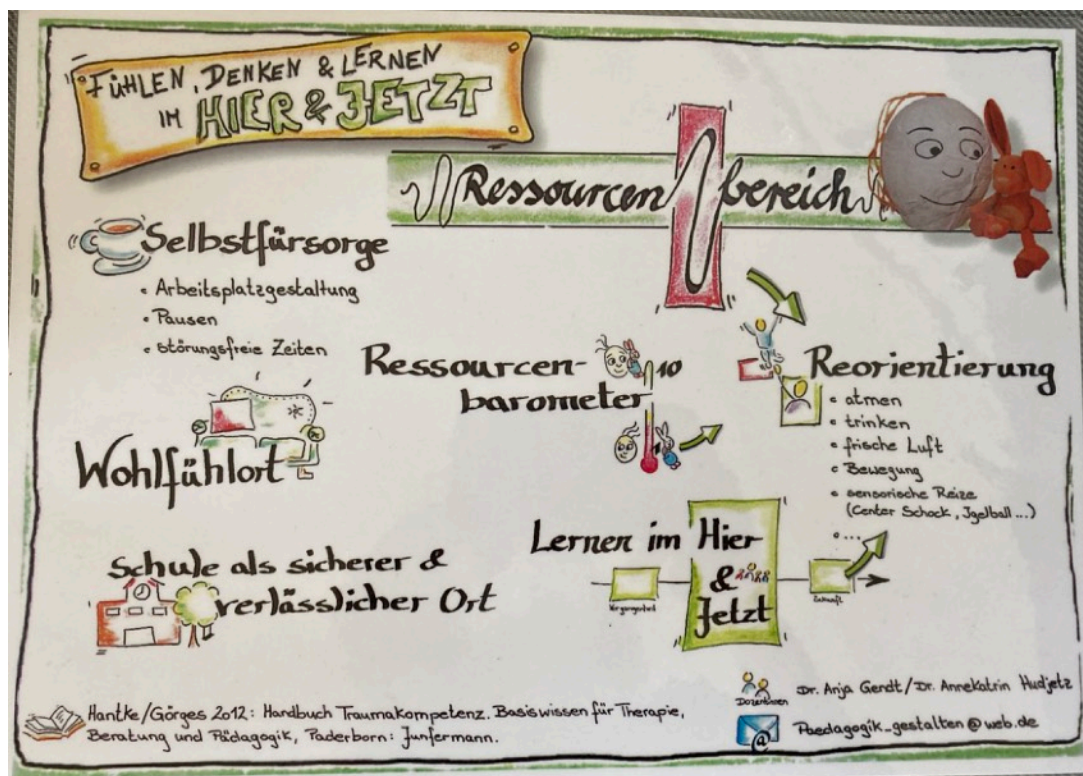 FÜHLEN, DENKEN & LERNEN
IM HIER & JETZT
Ressourcenbereich
Selbstfürsorge
• Arbeitsplatzgestaltung
• Pausen
• störungsfreie Zeiten
Ressourcen-
barometer
10
1
Reorientierung
• atmen
• trinken
• frische Luft
• Bewegung
• sensorische Reize
(Center Schock, Igelball...)
Wohlfühlort
Lernen im Hier
&
Jetzt
Vergangenheit
Zukunft
...
Schule als sicherer &
verlässlicher Ort
Hantke/Görges 2012: Handbuch Traumakompetenz. Basiswissen für Therapie,
Beratung und Pädagogik, Paderborn: Junfermann.
Dozentinnen
Dr. Anja Gendt/Dr. Annekatrin Hudjetz
@
Paedagogik_gestalten@web.de